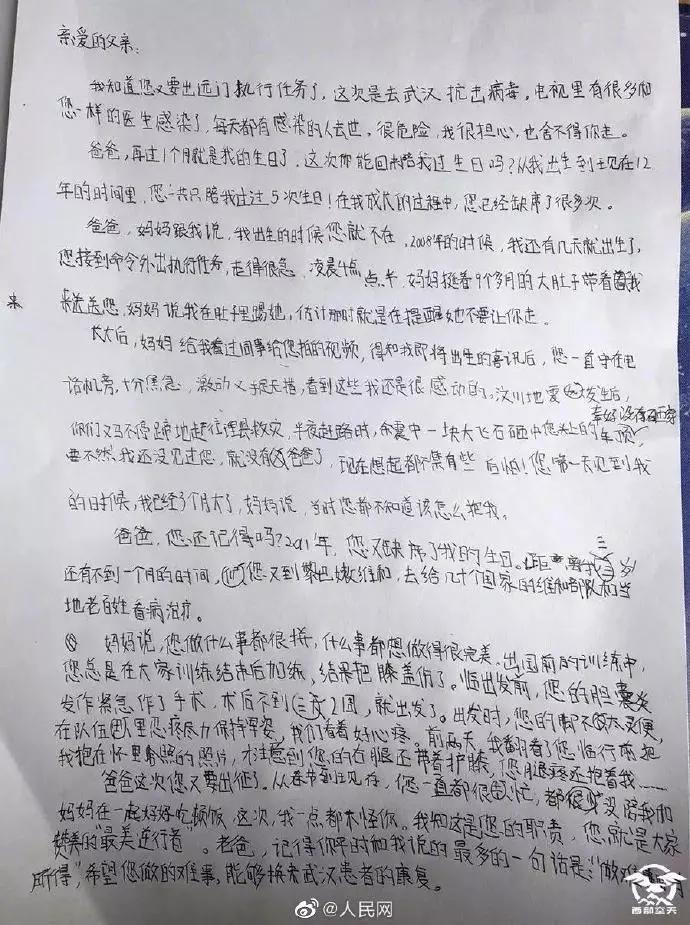 亲爱的父亲：
我知道您又要出远门执行任务了，这次是去武汉抗击病毒。电视里有很多和
您一样的医生感染了，每天都有感染的人去世，很危险，我很担心，也舍不得你走。
爸爸，再过1个月就是我的生日了，这次你能回来陪我过生日吗？从我出生到现在12
年的时间里，您一共只陪我过过5次生日！在我成长的过程中，您已经缺席了很多次。
爸爸，妈妈跟我说，我出生的时候您就不在，2008年的时候，我还有几天就出生了，
您接到命令外出执行任务，走得很急，凌晨4点 点半，妈妈挺着9个月的大肚子带着我
来
来送送您，妈妈说我在肚子里踢她，估计那时就是在提醒她不要让你走。
长大后，妈妈给我看过同事给您拍的视频，得知我即将出生的喜讯后，您一直守在电
话机旁，十分焦急，激动又手足无措，看到这些我还是很感动的。汶川地震发生后，
幸好没有砸穿
你们又马不停蹄地赶往理县救灾，半夜赶路时，余震中一块大飞石砸中您头上的车顶，
要不然我还没见过您，就没有爸爸了，现在想起都有些后怕！您第一天见到我
的时候，我已经3个月大了，妈妈说，当时您都不知道该怎么抱我。
爸爸，您还记得吗？2011年，您又缺席了我的生日。距离我三岁
还有不到一个月的时间，您又到黎巴嫩维和，去给几十个国家的维和部队和当
地老百姓看病治疗。
妈妈说，您做什么事都很拼，什么事都想做得很完美。出国前的训练中，
您总是在大家训练结束后加练，结果把膝盖伤了。临出发前，您的胆囊炎
发作紧急作了手术，术后不到2周，就出发了。出发时，您的脚不太灵便，
在队伍里忍疼尽力保持军姿，我们看着好心疼。前两天，我翻看了您临行前把
我抱在怀里拍照的照片，才注意到您的右腿还带着护膝，您腿疼还抱着我……
爸爸这次您又要出征了。从春节到现在，您一直都很忙，都很少没陪我和
妈妈在一起好好吃顿饭，这次，我一点都不怪你。我知这是您的职责，您就是大家
赞美的“最美逆行者”。老爸，记得你平时和我说的最多的一句话是：“做难
所得”，希望您做的难事，能够换来武汉患者的康复。
@人民网
西部空天